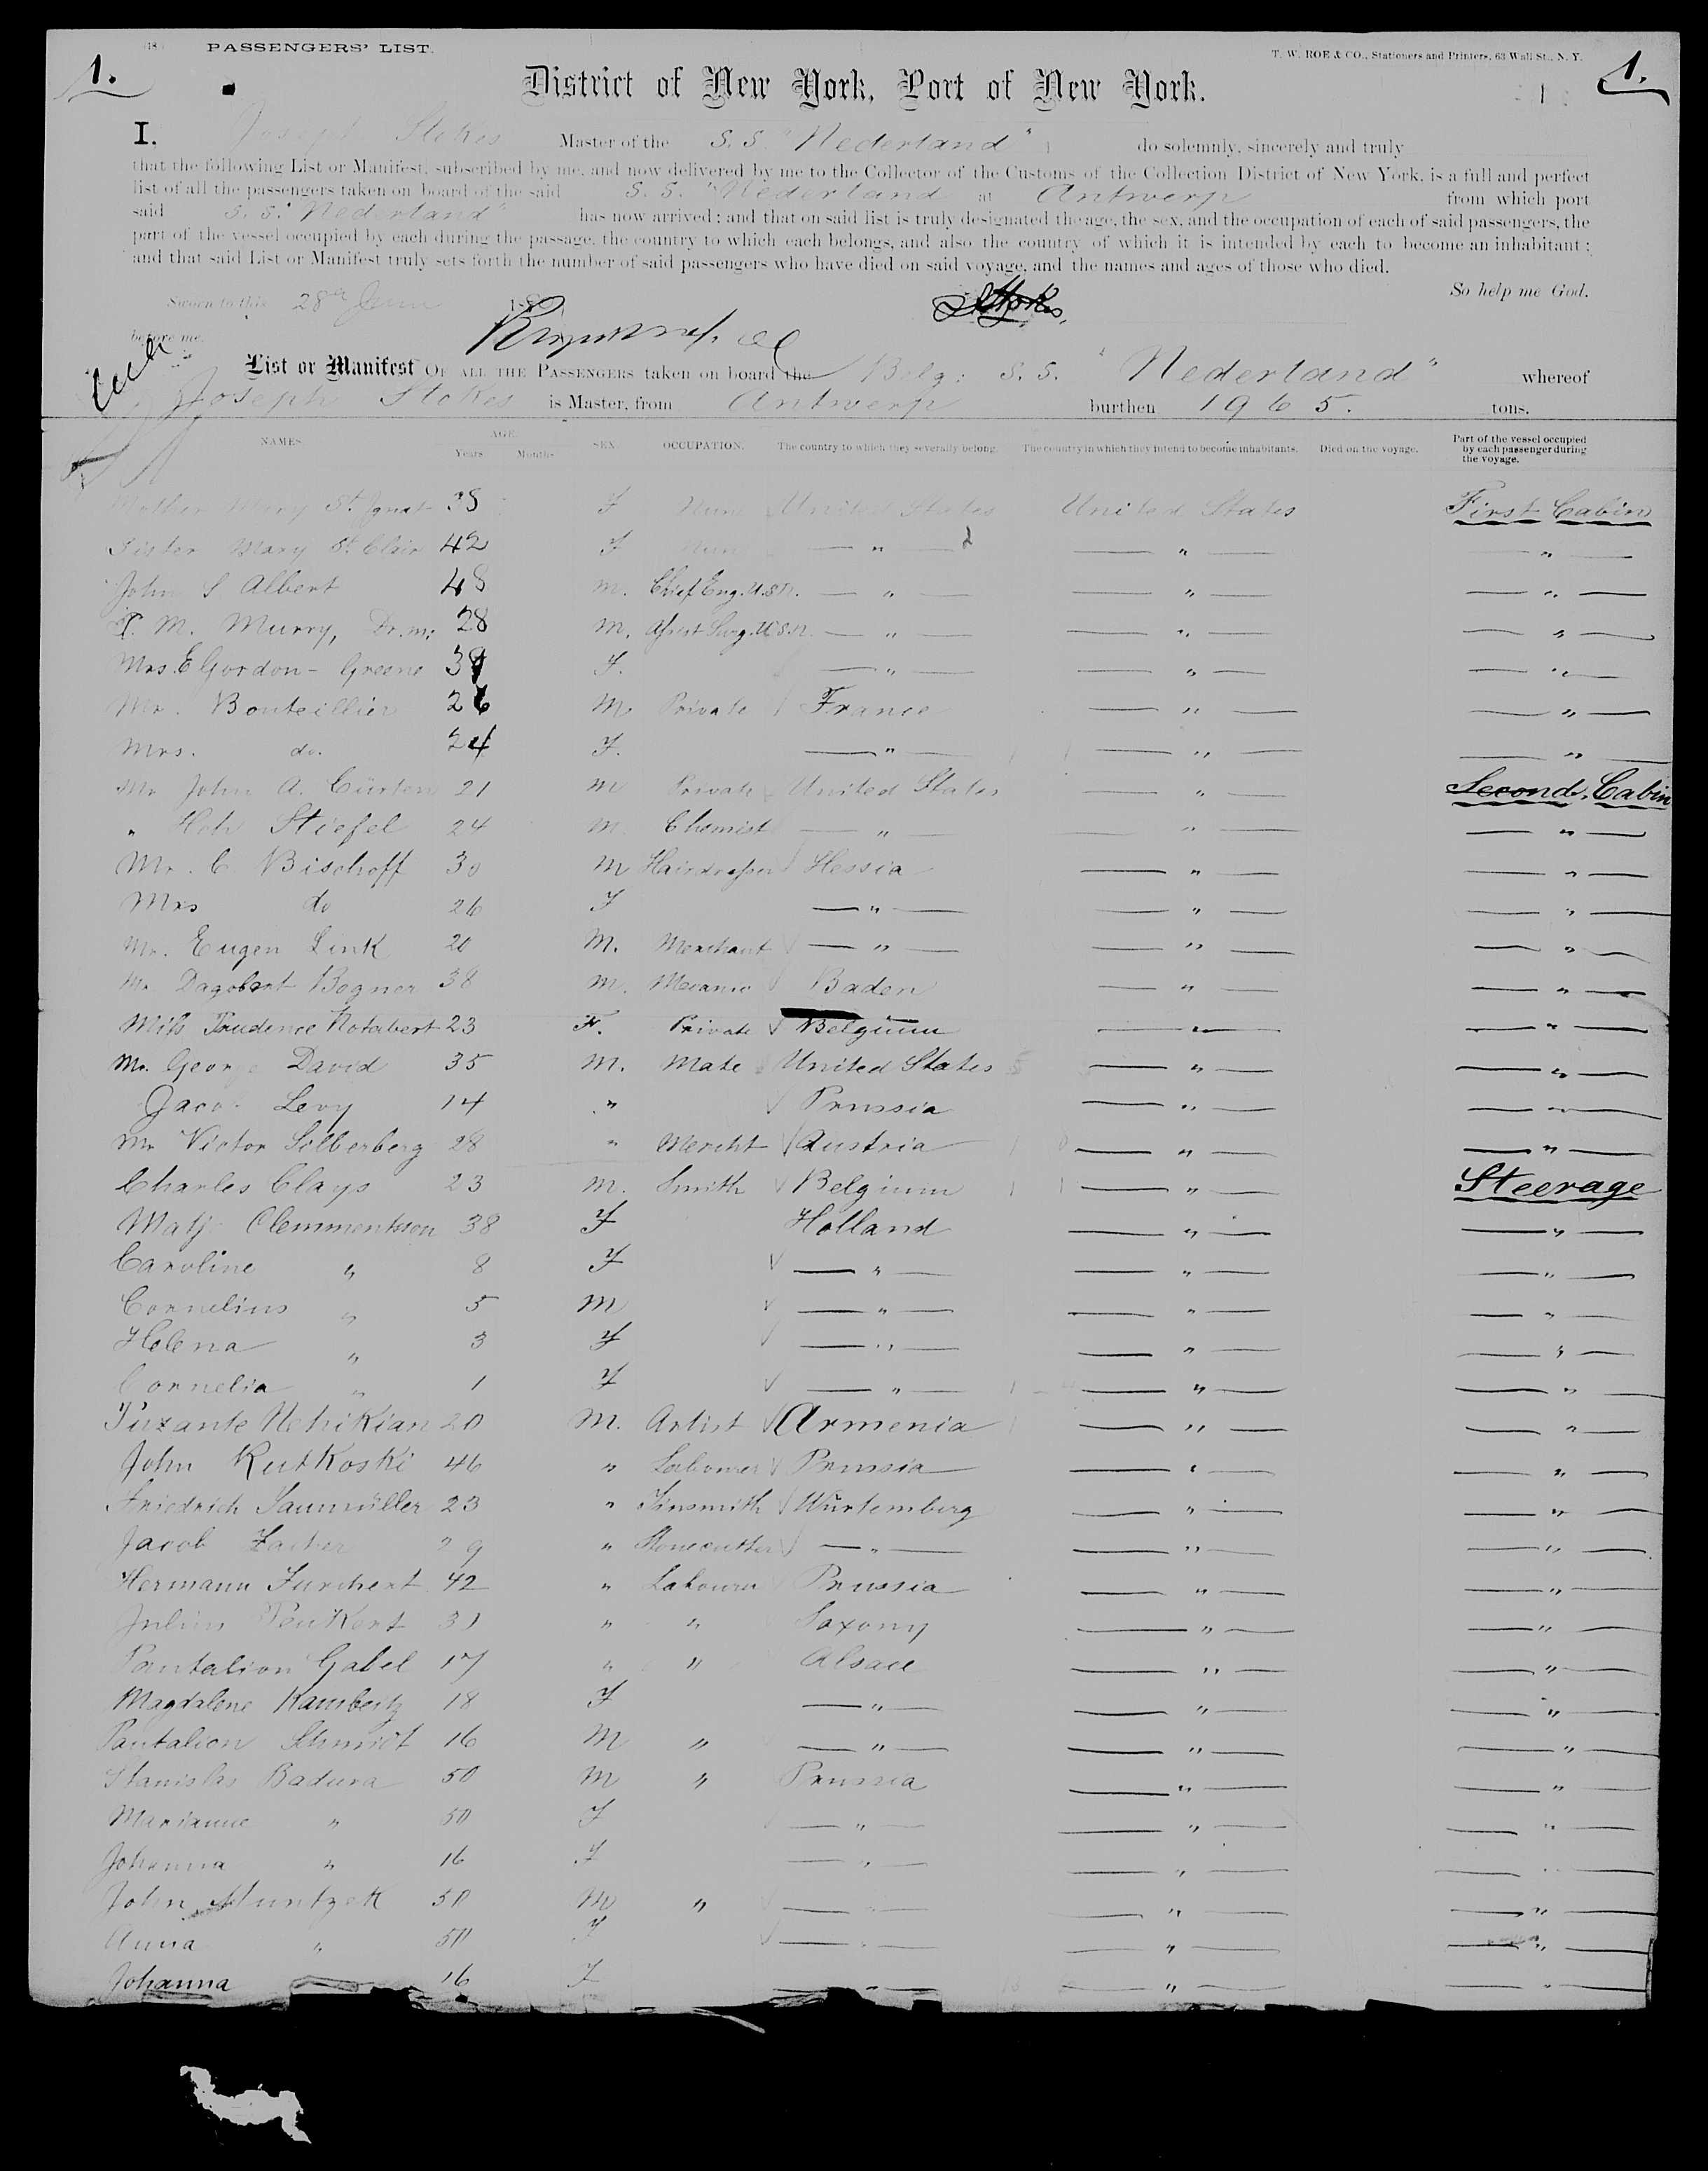 PASSENGERS' LIST.
T. W. ROE & CO., Stationers and Printers, 63 Wall St., N. Y.
1. 1.
District of New York, Port of New York.
I. Joseph Stokes Master of the S. S. "Nederland" do solemnly, sincerely and truly
that the following List or Manifest, subscribed by me, and now delivered by me to the Collector of the Customs of the Collection District of New York, is a full and perfect
list of all the passengers taken on board of the said S. S. "Nederland at Antwerp from which port
said S. S. "Nederland" has now arrived; and that on said list is truly designated the age, the sex, and the occupation of each of said passengers, the
part of the vessel occupied by each during the passage, the country to which each belongs, and also the country of which it is intended by each to become an inhabitant;
and that said List or Manifest truly sets forth the number of said passengers who have died on said voyage, and the names and ages of those who died.
So help me God.
Sworn to this 28th June 188
JStokes.
before me.
List or Manifest OF ALL THE PASSENGERS taken on board the Belg: S. S. "Nederland" whereof
Joseph Stokes is Master, from Antwerp burthen 1965. tons.
NAMES. AGE. Years Months SEX. OCCUPATION. The country to which they severally belong. The country in which they intend to become inhabitants. Died on the voyage. Part of the vessel occupied by each passenger during the voyage.
Mother Mary St. Ignat 38 F Nun United States United States First Cabin
Sister Mary St. Clair 42 F Nun " " "
John S Albert 48 M. Chief Eng. U.S.N. " " "
T. M. Murry, Dr. m: 28 M. Assist Surg. U.S.N. " " "
Mrs. E Gordon-Greene 39 F. " " "
Mr. Bouteillier 26 M. Private France " "
Mrs. do. 24 F. " " "
Mr John A. Cürten 21 M Private United States " Second Cabin
" Hch Stiefel 24 M. Chemist " " "
Mr. C Bischoff 30 M Hairdresser Hessia " "
Mrs do 26 F " " "
Mr. Eugen Link 20 M. Merchant " " "
Mr Dagobert Bogner 38 M. Mecanic Baden " "
Miss Prudence Notabert 23 F. Private Belgium " "
Mr. George David 35 M. Mate United States " "
Jacob Levy 14 " Prussia " "
Mr Victor Silberberg 28 " Mercht Austria " "
Charles Clays 23 M. Smith Belgium " Steerage
Matj Clemmentsson 38 F Holland " "
Caroline " 8 F " " "
Cornelius " 5 M " " "
Helena " 3 F " " "
Cornelia " 1 F " " "
Puzante Nehikian 20 M. Artist Armenia " "
John Rutkoski 46 " Labourer Prussia " "
Friedrich Saumüller 23 " Tinsmith Würtemberg " "
Jacob 29 " Stonecutter " " "
Hermann Furchert 42 " Labourer Prussia " "
Julius Peukert 31 " " Saxony " "
Pantalion Gabel 17 " " Alsace " "
Magdalene Kambeitz 18 F " " "
Pantalion Schmidt 16 M " " " "
Stanislas Badura 50 M " Prussia " "
Marianne " 50 F " " "
Johanna " 16 F " " "
John Muntzek 50 M " " " "
Anna " 50 F " " "
Johanna 16 F " " "